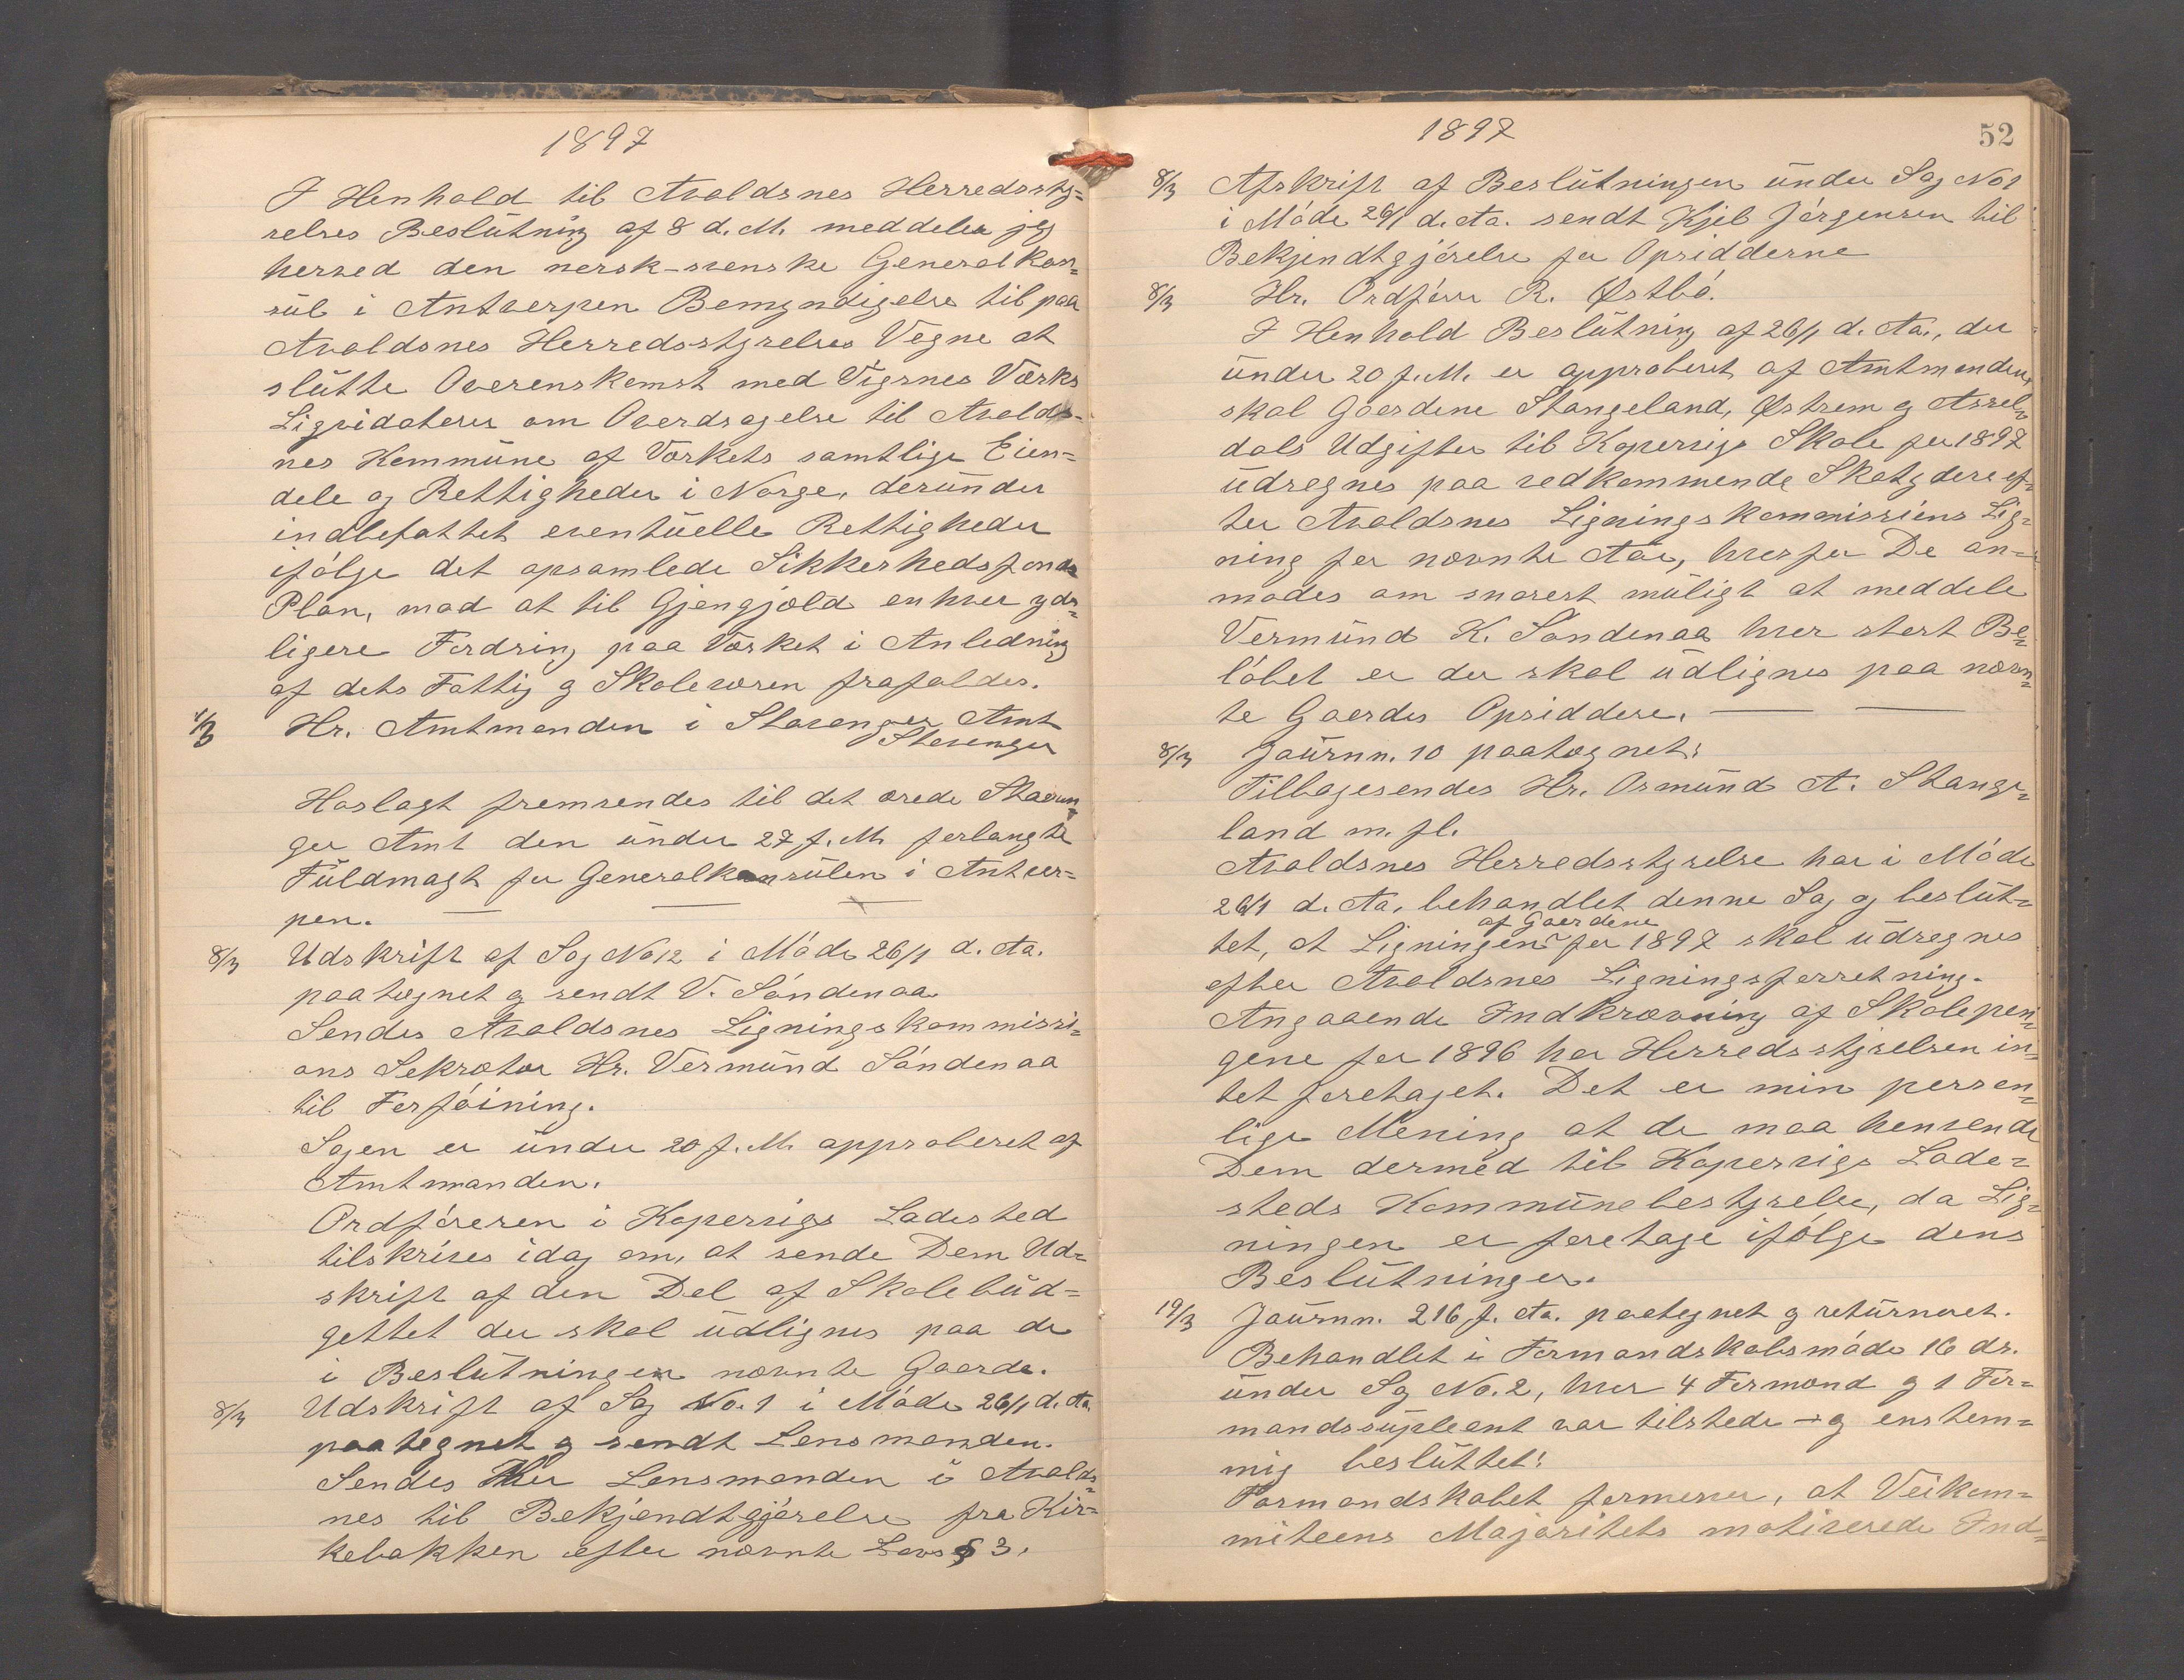 1897
I Henhold til Avaldsnes Herredssty=
relses Beslutning af 8 d. M. meddeler jeg
herved den norsk-svenske Generalkon=
sul i Antverpen Bemyndigelse til paa
Avaldsnes Herredsstyrelses Vegne at
slutte Overenskomst med Vigsnes Værks
Liqvidatorer om Overdragelse til Avalds=
nes Kommune af Værkets samtlige Eien=
dele og Rettigheder i Norge, derunder
indbefattet eventuelle Rettigheder
ifølge det opsamlede Sikkerhedsfonds
Plan, mod at til Gjengjæld enhver yder=
ligere Fordring paa Værket i Anledning
af dets Fattig og Skolevæsen frafaldes.
1/3 Hr. Amtmanden i Stavanger Amt
Stavanger
Hoslagt fremsendes til det ærede Stavan=
ger Amt den under 27 f. M. forlangte
Fuldmagt for Generalkonsulen i Antver=
pen.
8/3 Udskrift af Sag No 12 i Møde 26/1 d. Aa.
paategnet og sendt V. Søndenaa
Sendes Avaldsnes Ligningskommissi=
ons Sekretær Hr. Vermund Søndenaa
til Forføining.
Sagen er under 20 f. M. approberet af
Amtmanden.
Ordføreren i Kopervigs Ladested
tilskrives idag om, at sende Dem Ud=
skrift af den Del af Skolebud=
gettet der skal udlignes paa de
i Beslutningen nævnte Gaarde.
8/3 Udskrift af Sag No. 1 i Møde 26/1 d. Aa.
paategnet og sendt Lensmanden.
Sendes Hr Lensmanden i Avalds=
nes til Bekjendtgjørelse fra Kir=
kebakken efter nævnte Lovs § 3.
1897
52
8/3 Afskrift af Beslutningen under Sag No 1
i Møde 26/1 d. Aa. sendt Kjel Jørgensen til
Bekjendtgjørelse for Opsidderne
8/3 Hr. Ordfører R. Østbø.
I Henhold Beslutning af 26/1 d. Aa., der
under 20 f. M. er approberet af Amtmanden,
skal Gaardene Stangeland, Østrem og Assel=
dals Udgifter til Kopervigs Skole for 1897
udregnes paa vedkommende Skatydere ef=
ter Avaldsnes Ligningskommissions Lig=
ning for nævnte Aar, hvorfor De an=
modes om snarest muligt at meddele
Vermund K. Søndenaa hvor stort Be=
løbet er der skal udlignes paa nævn=
te Gaardes Opsiddere.
8/3 Journn. 10 paategnet:
Tilbagesendes Hr. Osmund A. Stange=
land m. fl.
Avaldsnes Herredsstyrelse har i Møde
26/1 d. Aa. behandlet denne Sag og beslut=
af Gaardene
tet, at Ligningen for 1897 skal udregnes
efter Avaldsnes Ligningsforretning.
Angaaende Indkrævning af Skolepen=
gene for 1896 har Herredsstyrelsen in=
tet foretaget. Det er min person=
lige Mening at de maa henvende
Dem dermed til Kopervigs Lade=
steds Kommunebestyrelse, da Lig=
ningen er foretage ifølge dens
Beslutninger.
19/3 Journn. 216 f. Aa. paategnet og returneret.
Behandlet i Formandskabsmøde 16 ds.
under Sag No. 2, hvor 4 Formænd og 1 For=
mandssupleant var tilstede og enstem=
mig besluttet:
Formandskabet formener, at Veikom=
miteens Majoritets motiverede Ind=